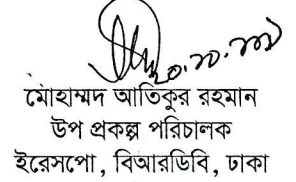 মোহাম্মদ আতিকুর রহমান
উপ প্রকল্প পরিচালক
ইরেসপো, বিআরডিবি, ঢাকা